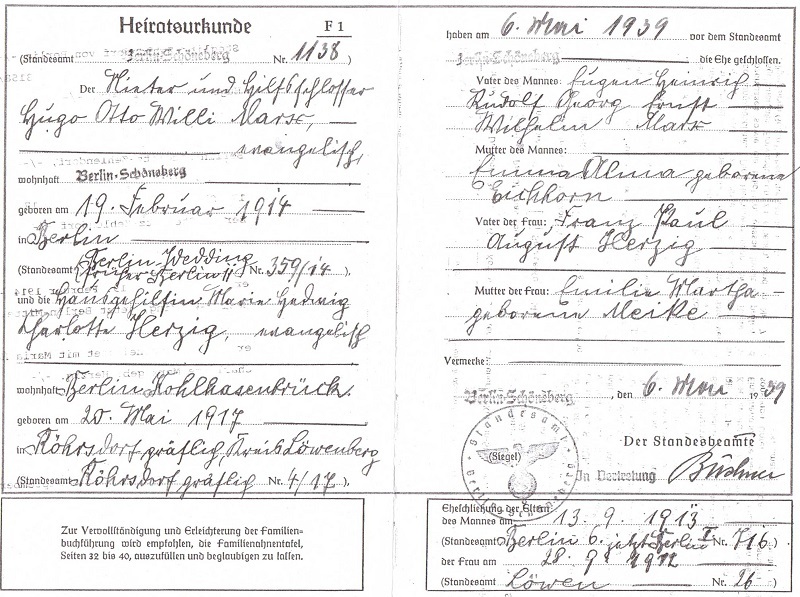 Heiratsurkunde F 1
(Standesamt Berlin-Schöneberg Nr. 1138)
Der Mieter und Hilfsschlosser
Hugo Otto Willi Marx,
evangelisch,
wohnhaft Berlin-Schöneberg
geboren am 19. Februar 1914
in Berlin
(Standesamt (Berlin Wedding
früher Berlin 11 Nr. 359/14 ),
und die Hausgehilfin Marie Hedwig
Charlotte Herzig, evangelisch
wohnhaft Berlin Kohlhasenbrück.
geboren am 20. Mai 1917
in Röhrsdorf gräflig, Kreis Löwenberg
(Standesamt Röhrsdorf gräflig Nr. 4/17 ),
Zur Vervollständigung und Erleichterung der Familien-
buchführung wird empfohlen, die Familienahnentafel,
Seiten 32 bis 40, auszufüllen und beglaubigen zu lassen.
haben am 6. Mai 1939 vor dem Standesamt
Berlin-Schöneberg die Ehe geschlossen.
Vater des Mannes: Eugen Heinrich
Rudolf Georg Ernst
Wilhelm Marx
Mutter des Mannes:
Emma Alma geborene
Eichhorn
Vater der Frau: Franz Paul
August Herzig
Mutter der Frau: Emilie Martha
geborene Merke
Vermerke:
Berlin-Schöneberg, den 6. Mai 1939
Standesamt
Berlin-Schöneberg
(Siegel)
Der Standesbeamte
In Vertretung
Eheschließung der Eltern
des Mannes am 13. 9. 1913
(Standesamt Berlin 6. jetzt Berlin I Nr. 716 )
der Frau am 28. 9. 1912
(Standesamt Löwen Nr. 26 )